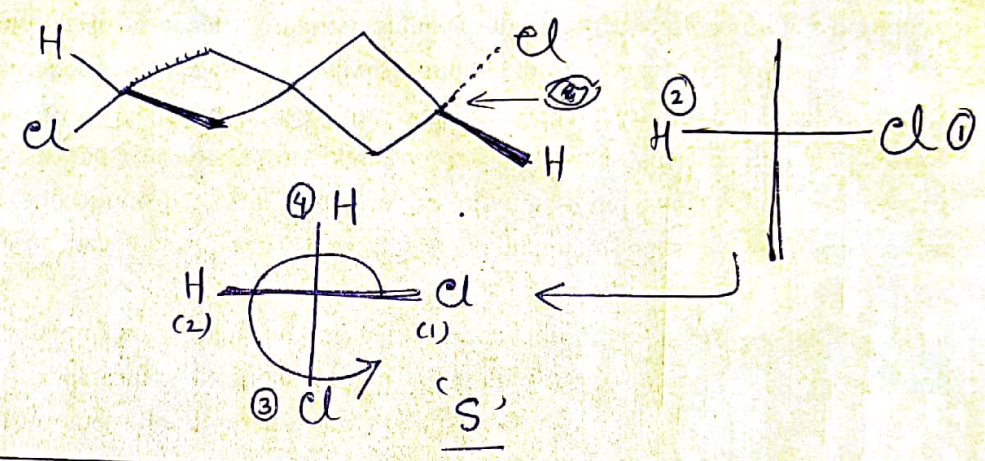 H
Cl
Cl
H
② H Cl ①
④ H
H Cl
(2) (1)
③ Cl
'S'